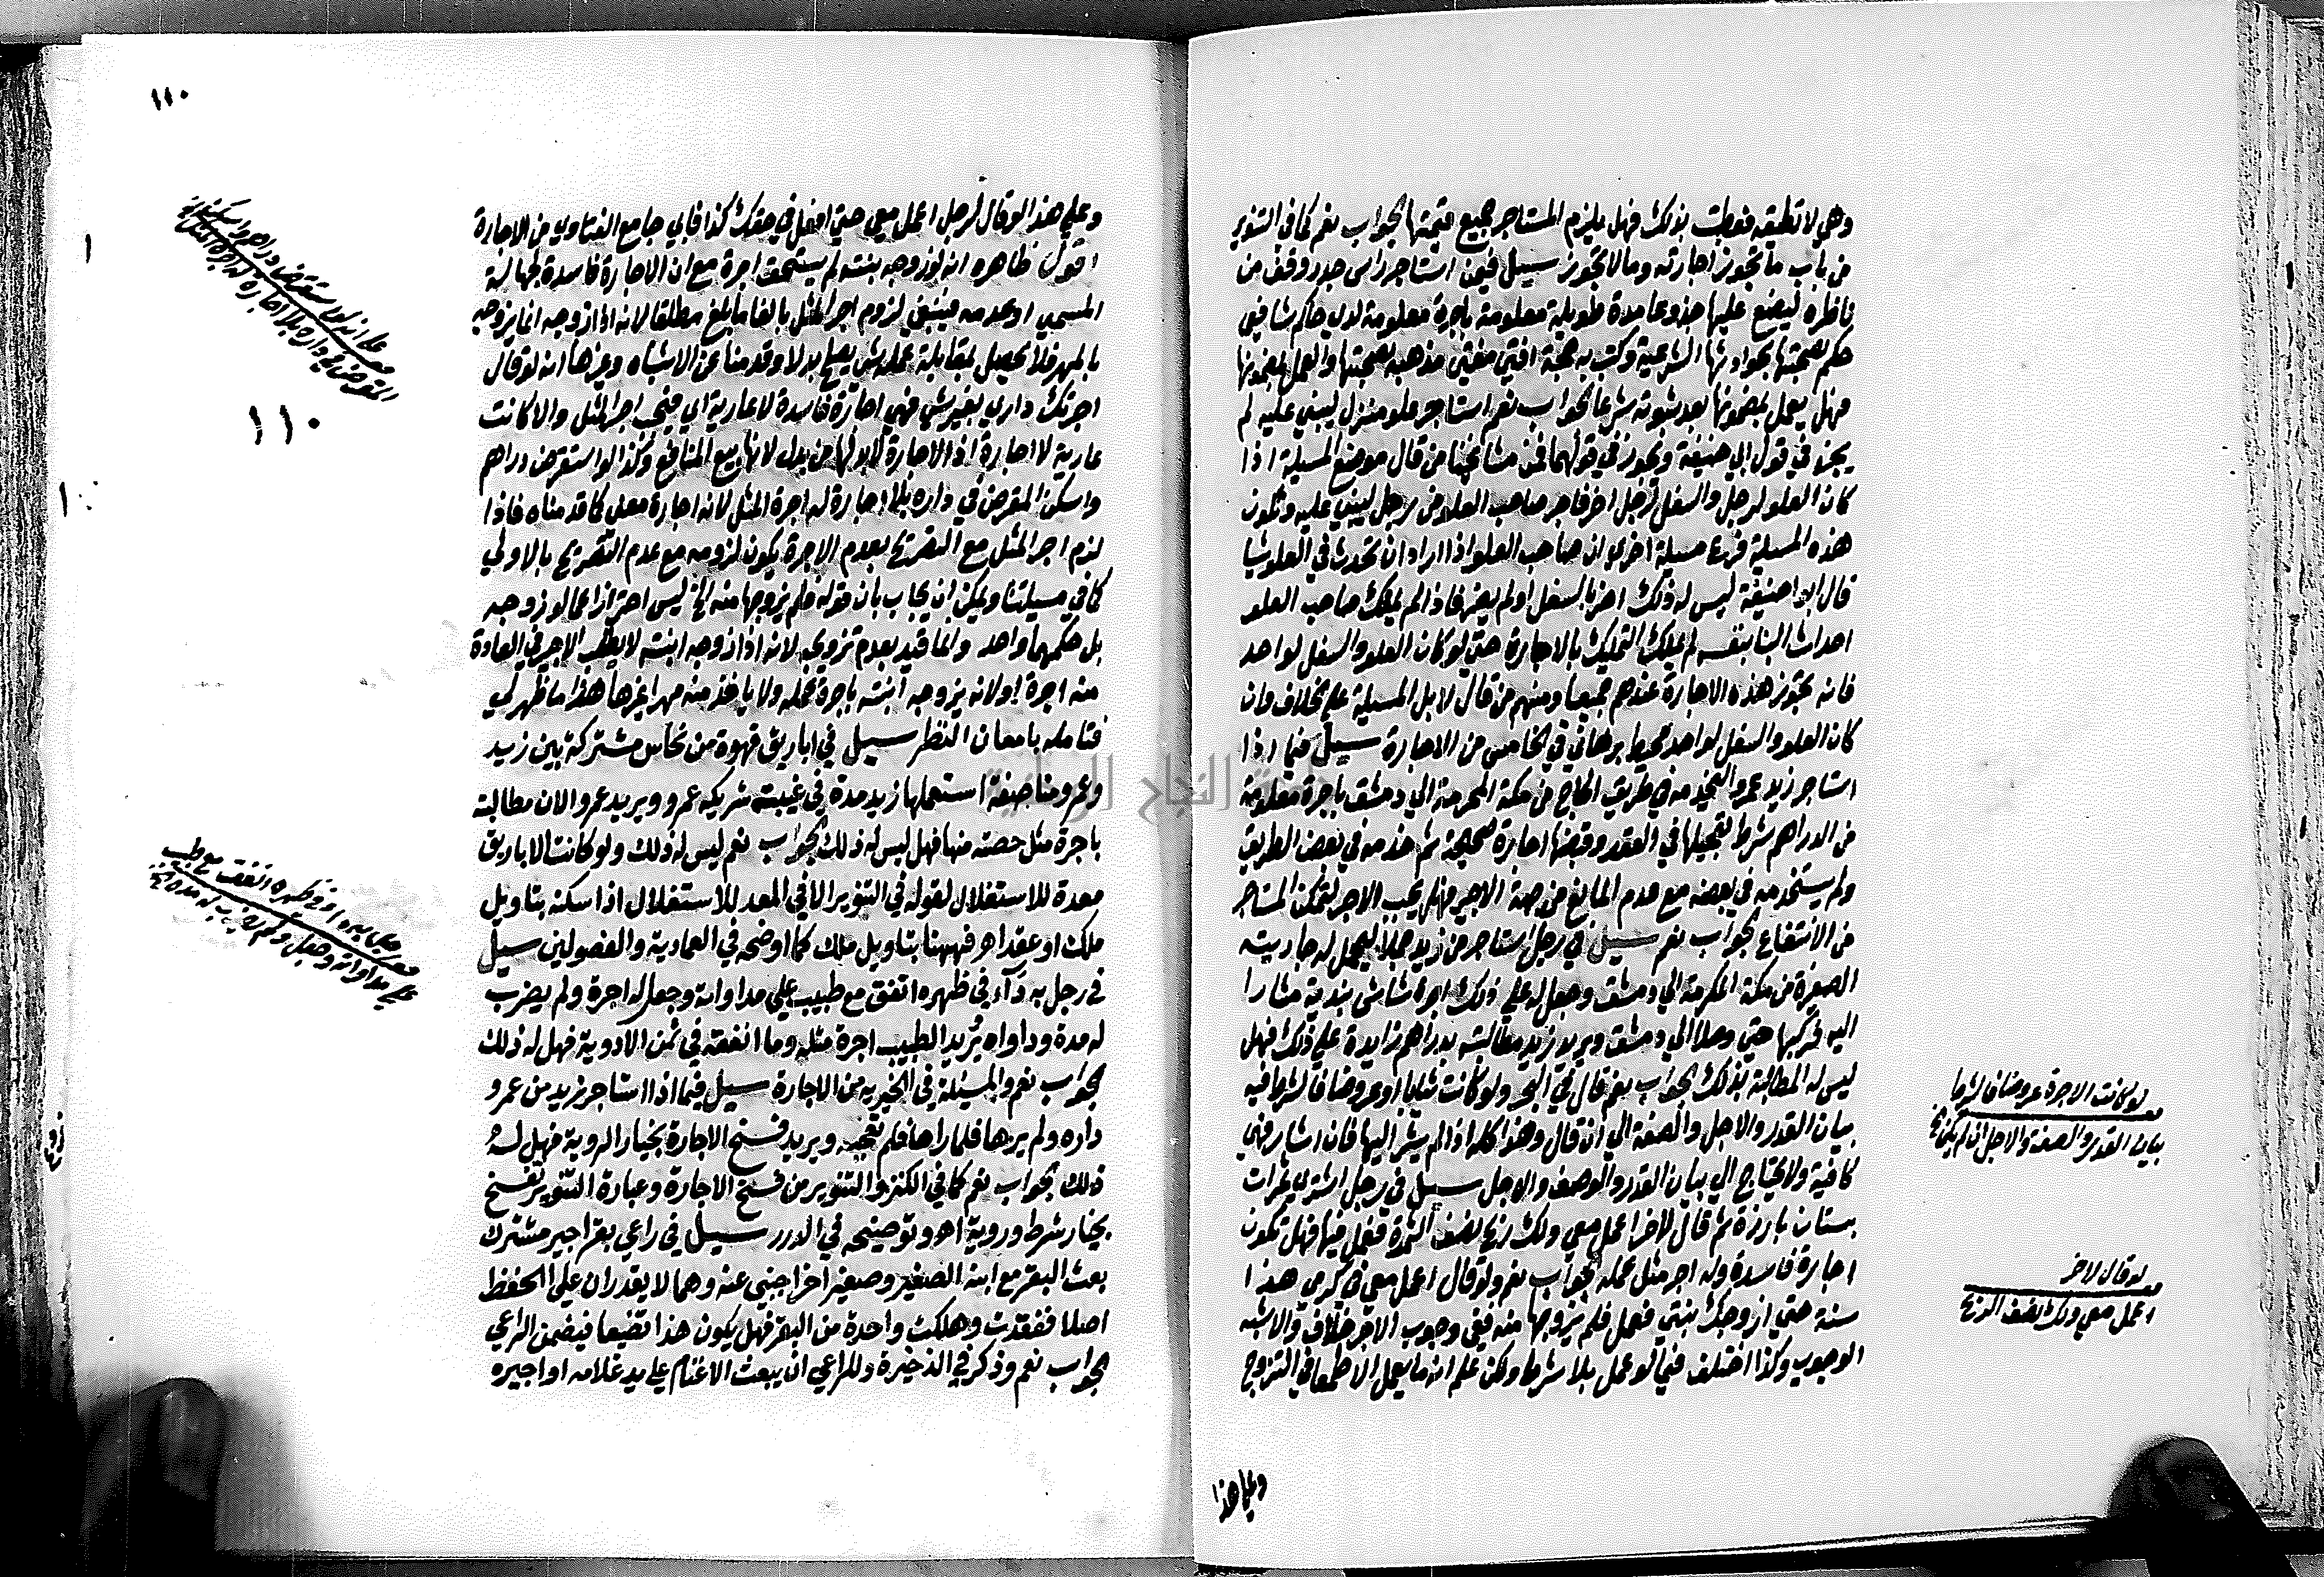 وهي لا تطيقه فعطبت بذلك فهل يلزم المستاجر جميع قيمتها الجواب نعم كما في التنوير
من باب ما تجوز اجارته وما لا تجوز سيل فيمن استاجر راس جدر وقف من
ناظره ليضع عليها جذوعا مدة طويلة معلومة باجرة معلومة لدي حاكم شافعي
حكم بصحتها بحوادثها الشرعية وكتب به حجة افتي مفتي مذهبه بصحتها والعمل بمضمونها
فهل يعمل بمضمونها بعد ثبوته شرعا الجواب نعم استاجر علو منزل ليبني عليه لم
يجز في قول ابي حنيفة ويجوز في قولهما فمن مشايخنا من قال موضع المسيلة اذا
كان العلو لرجل والسفل لرجل اخر فاجر صاحب العلا من رجل ليبني عليه وتكون
هذه المسيلة فرع مسيلة اخري ان صاحب العلو اذا اراد ان يحدث في العلو شيا
قال ابو حنيفة ليس له ذلك اضر بالسفل او لم يضر فاذا لم يملك صاحب العلو
احداث البنا بنفسه لم يملك التمليك بالاجارة حتي لو كان العلو والسفل لواحد
فانه تجوز هذه الاجارة عندهم جميعا ومنهم من قال لا بل المسيلة علي الخلاف وان
كان العلو والسفل لواحد محيط برهاني في الخامس من الاجارة سيل فيما اذا
استاجر زيد عمرو اليخدمه في طريق الحاج من مكة المحرمة الي دمشق باجرة معلومة
من الدراهم شرط تعجيلها في العقد وقبضها اجارة صحيحة ثم خدمه في بعض الطريق
ولم يستخدمه في بعضه مع عدم المانع من جهة الاجير فهل يجب الاجر لتمكن المستاجر
من الانتفاع الجواب نعم سيل في رجل استاجر من زيد جملا ليحمل له جاريته
الصغيرة من مكة المكرمة الي دمشق وجعل له علي ذلك اجرا شاش بندية مشارا
اليه فركبها حتي وصلا الي دمشق ويريد زيد مطالبته بدراهم زايدة علي ذلك فهل
ليس له المطالبة بذلك الجواب نعم قال في البحر ولو كانت ثيابا او عروضا فالشرط فيه
بيان القدر والاجل والصفة الي ان قال وهذا كله اذا لم يشر اليها فان اشار فهي
كافية ولا يحتاج الي بيان القدر والوصف والاجل سيل في رجل اشتري ثمرات
بستان بارزة ثم قال لاخر اعمل معي ولك ربع نصف الثمرة فعمل فيها فهل تكون
اجارة فاسدة وله اجر مثل عمله الجواب نعم ولو قال اعمل معي في كرمي هذا
سنة حتي ازوجك بنتي فعمل فلم يزوجها منه ففي وجوب الاجر خلاف والاشبه
الوجوب وكذا اختلف فيما لو عمل بلا شرط ولكن علم انه ما يعمل الا طمعا في التزوج
لو كانت الاجرة عروضا فالشرط
بيان القدر والصفة والاجل ان لم يشر
لو قال لاخر
اعمل معي ولك نصف الربع
وعلي هذا
١١٠
وعلي هذا لو قال لرجل اعمل معي حتي افعل في حقك كذا فابي جامع الفتاوي من الاجارة
اقول ظاهره انه لو زوجه بنته لم يستحق اجرة مع ان الاجارة فاسدة لجهالة
المسمي او عدمه فينبغي لزوم اجر المثل بالغا ما بلغ مطلقا لانه اذا زوجه انما يزوجه
بالمهر فلا يحصل بمقابلة عمله شي يصلح بدلا وقدمنا عن الاشباه وغيرها انه لو قال
اجرتك داري بغير شي فهي اجارة فاسدة لا عارية اي فيجب اجر المثل والا كانت
عارية لا اجارة اذ الاجارة لا بد لها من بدل لانها بيع المنافع وكذا لو استقرض دراهم
واسكن المقرض في داره بلا اجارة له اجرة المثل لانه اجارة معني كما قدمناه فاذا
لزم اجر المثل مع التصريح بعدم الاجرة يكون لزومه مع عدم التصريح بالاولي
كما في مسيلتنا ويمكن ان يجاب بان قوله فلم يزوجها منه الخ ليس احترازا عما لو زوجه
بل حكمهما واحد وانما قيد بعدم تزويجه لانه اذا زوجه ابنته لا يطلب الاجر في العادة
منه اجرة او لانه يزوجه ابنته باجرة عمله ولا ياخذ منه مهرا غيرها هذا ما ظهر لي
فتامله بامعان النظر سيل في اباريق قهوة من نحاس مشتركة بين زيد
وعمرو مناصفة استعملها زيد مدة في غيبة شريكه عمرو ويريد عمرو الان مطالبته
باجرة مثل حصته منها فهل ليس له ذلك الجواب نعم ليس له ذلك ولو كانت الاباريق
معدة للاستغلال لقوله في التنوير الا في المعد للاستغلال اذا سكنه بتاويل
ملك او عقد اهـ فههنا بتاويل ملك كما اوضحه في العمادية والفصولين سيل
في رجل به داء في ظهره اتفق مع طبيب علي مداواته وجعل له اجرة ولم يضرب
له مدة وداواه يريد الطبيب اجرة مثله وما انفقه في ثمن الادوية فهل له ذلك
الجواب نعم والمسيلة في الخيرية من الاجارة سيل فيما اذا استاجر زيد من عمرو
داره ولم يرها فلما راها فلم تعجبه ويريد فسخ الاجارة بخيار الروية فهل له
ذلك الجواب نعم كما في الكنز والتنوير من فسخ الاجارة وعبارة التنوير تفسخ
بخيار شرط وروية اهـ وتوضيحه في الدرر سيل في راعي بقر اجير مشترك
بعث البقر مع ابنه الصغير وصغير اخر اجنبي عنه وهما لا يقدران علي الحفظ
اصلا ففقدت وهلكت واحدة من البقر فهل يكون هذا تضييعا فيضمن الراعي
الجواب نعم وذكر في الذخيرة وللراعي ان يبعث الاغنام علي يد غلامه او اجيره
١١٠